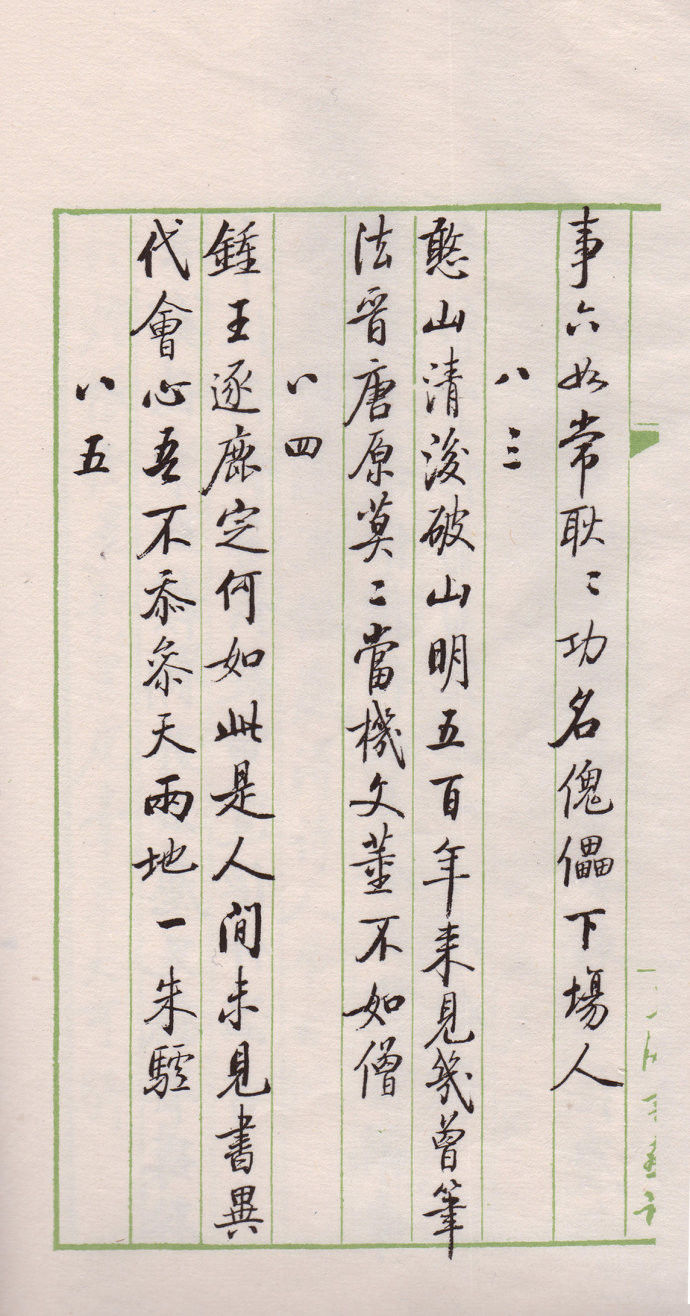 事六如常耿〻功名傀儡下場人
八三
憨山清後破山明五百年來見幾曾筆
法晉唐原莫〻當機文董不如僧
八四
鍾王逐鹿定何如此是人間未見書異
代會心吾不忝參天兩地一朱驢
八五